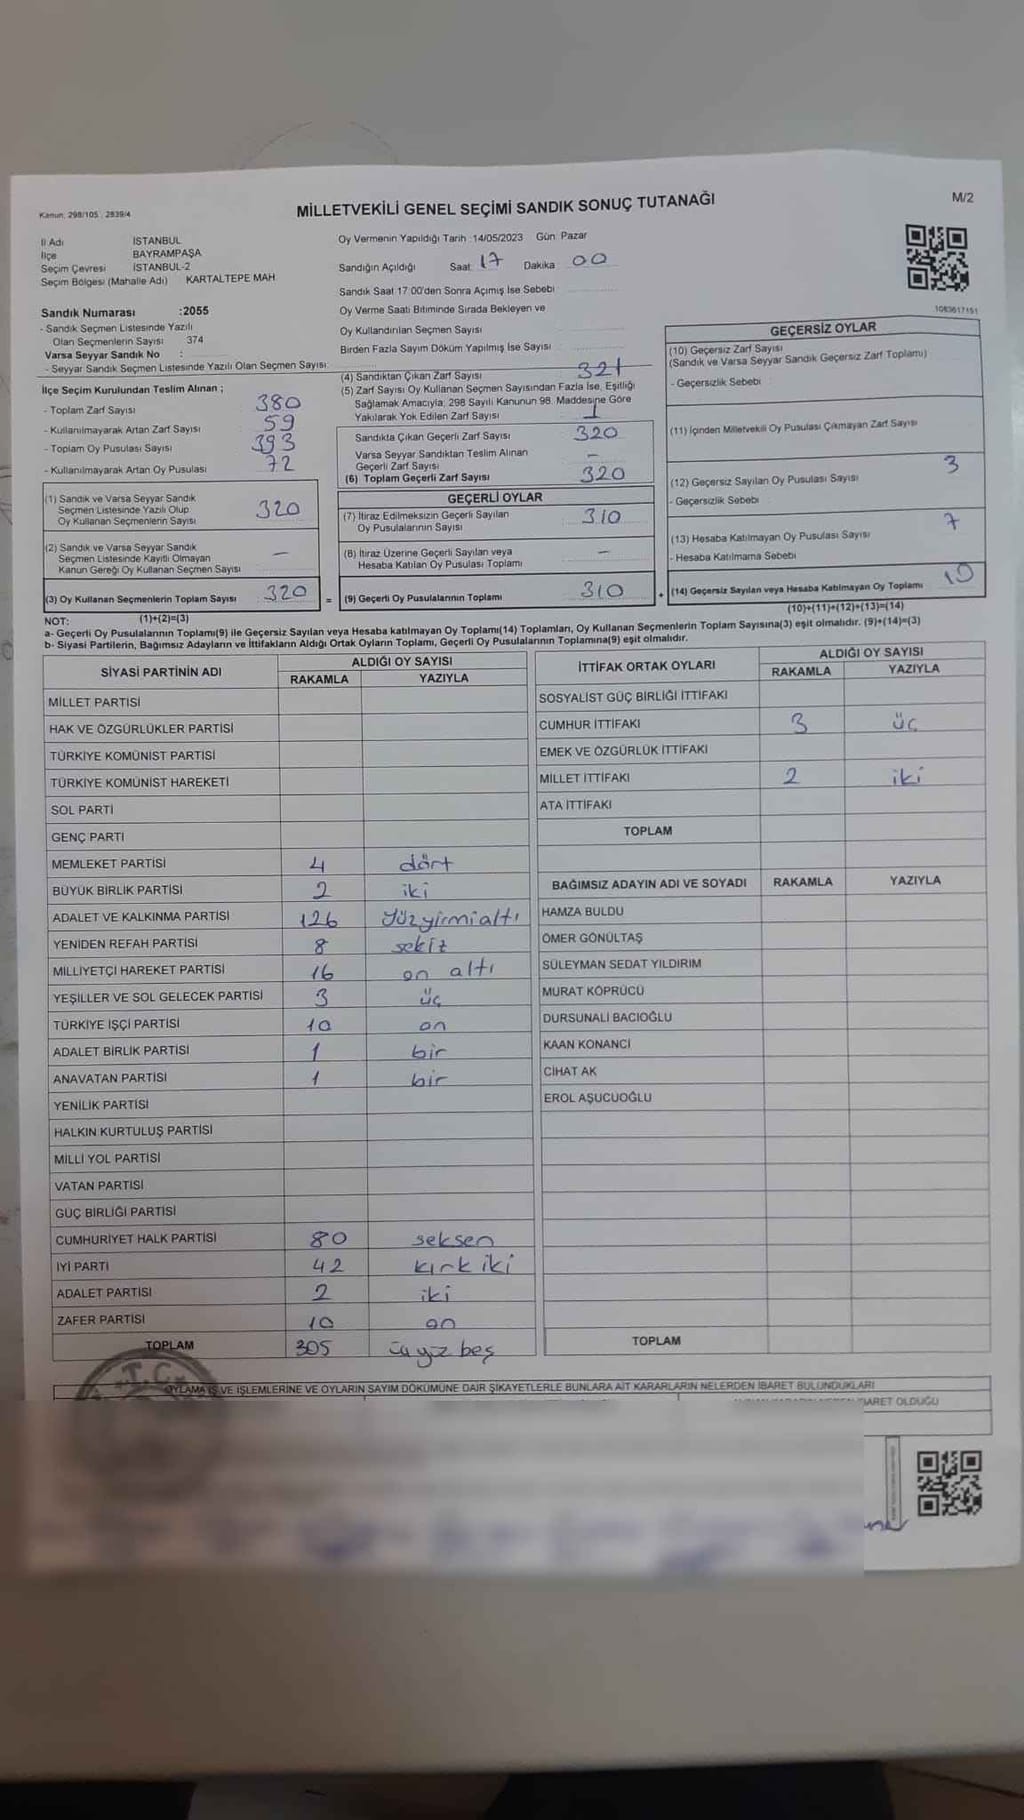 Kanun: 298/105 , 2839/4
MİLLETVEKİLİ GENEL SEÇİMİ SANDIK SONUÇ TUTANAĞI
M/2
İl Adı İSTANBUL
İlçe BAYRAMPAŞA
Seçim Çevresi İSTANBUL-2
Seçim Bölgesi (Mahalle Adı) KARTALTEPE MAH
Oy Vermenin Yapıldığı Tarih :14/05/2023 Gün: Pazar
Sandığın Açıldığı Saat: 17 Dakika 00
Sandık Saat 17:00'den Sonra Açımış İse Sebebi
Oy Verme Saati Bitiminde Sırada Bekleyen ve
Oy Kullandırılan Seçmen Sayısı
Birden Fazla Sayım Döküm Yapılmış İse Sayısı
1083617151
Sandık Numarası :2055
- Sandık Seçmen Listesinde Yazılı
Olan Seçmenlerin Sayısı 374
Varsa Seyyar Sandık No :
- Seyyar Sandık Seçmen Listesinde Yazılı Olan Seçmen Sayısı:
İlçe Seçim Kurulundan Teslim Alınan ;
- Toplam Zarf Sayısı 380
- Kullanılmayarak Artan Zarf Sayısı 59
- Toplam Oy Pusulası Sayısı 393
- Kullanılmayarak Artan Oy Pusulası 72
(1) Sandık ve Varsa Seyyar Sandık
Seçmen Listesinde Yazılı Olup
Oy Kullanan Seçmenlerin Sayısı 320
(2) Sandık ve Varsa Seyyar Sandık
Seçmen Listesinde Kayıtlı Olmayan
Kanun Gereği Oy Kullanan Seçmen Sayısı —
(3) Oy Kullanan Seçmenlerin Toplam Sayısı 320
(4) Sandıktan Çıkan Zarf Sayısı 321
(5) Zarf Sayısı Oy Kullanan Seçmen Sayısından Fazla İse, Eşitliği
Sağlamak Amacıyla; 298 Sayılı Kanunun 98. Maddesine Göre
Yakılarak Yok Edilen Zarf Sayısı 1
Sandıkta Çıkan Geçerli Zarf Sayısı 320
Varsa Seyyar Sandıktan Teslim Alınan
Geçerli Zarf Sayısı —
(6) Toplam Geçerli Zarf Sayısı 320
GEÇERLİ OYLAR
(7) İtiraz Edilmeksizin Geçerli Sayılan
Oy Pusulalarının Sayısı 310
(8) İtiraz Üzerine Geçerli Sayılan veya
Hesaba Katılan Oy Pusulası Toplamı —
= (9) Geçerli Oy Pusulalarının Toplamı 310
GEÇERSİZ OYLAR
(10) Geçersiz Zarf Sayısı
(Sandık ve Varsa Seyyar Sandık Geçersiz Zarf Toplamı)
- Geçersizlik Sebebi
(11) İçinden Milletvekili Oy Pusulası Çıkmayan Zarf Sayısı
(12) Geçersiz Sayılan Oy Pusulası Sayısı 3
- Geçersizlik Sebebi
(13) Hesaba Katılmayan Oy Pusulası Sayısı 7
- Hesaba Katılmama Sebebi
+ (14) Geçersiz Sayılan veya Hesaba Katılmayan Oy Toplamı 10
NOT: (1)+(2)=(3) (10)+(11)+(12)+(13)=(14)
a- Geçerli Oy Pusulalarının Toplamı(9) ile Geçersiz Sayılan veya Hesaba katılmayan Oy Toplamı(14) Toplamları, Oy Kullanan Seçmenlerin Toplam Sayısına(3) eşit olmalıdır. (9)+(14)=(3)
b- Siyasi Partilerin, Bağımsız Adayların ve İttifakların Aldığı Ortak Oyların Toplamı, Geçerli Oy Pusulalarının Toplamına(9) eşit olmalıdır.
SİYASİ PARTİNİN ADI ALDIĞI OY SAYISI
RAKAMLA YAZIYLA
MİLLET PARTİSİ
HAK VE ÖZGÜRLÜKLER PARTİSİ
TÜRKİYE KOMÜNİST PARTİSİ
TÜRKİYE KOMÜNİST HAREKETİ
SOL PARTİ
GENÇ PARTİ
MEMLEKET PARTİSİ 4 dört
BÜYÜK BİRLİK PARTİSİ 2 iki
ADALET VE KALKINMA PARTİSİ 126 Yüzyirmialtı
YENİDEN REFAH PARTİSİ 8 sekiz
MİLLİYETÇİ HAREKET PARTİSİ 16 on altı
YEŞİLLER VE SOL GELECEK PARTİSİ 3 üç
TÜRKİYE İŞÇİ PARTİSİ 10 on
ADALET BİRLİK PARTİSİ 1 bir
ANAVATAN PARTİSİ 1 bir
YENİLİK PARTİSİ
HALKIN KURTULUŞ PARTİSİ
MİLLİ YOL PARTİSİ
VATAN PARTİSİ
GÜÇ BİRLİĞİ PARTİSİ
CUMHURİYET HALK PARTİSİ 80 seksen
İYİ PARTİ 42 kırk iki
ADALET PARTİSİ 2 iki
ZAFER PARTİSİ 10 on
TOPLAM 305 üçyüz beş
İTTİFAK ORTAK OYLARI ALDIĞI OY SAYISI
RAKAMLA YAZIYLA
SOSYALİST GÜÇ BİRLİĞİ İTTİFAKI
CUMHUR İTTİFAKI 3 üç
EMEK VE ÖZGÜRLÜK İTTİFAKI
MİLLET İTTİFAKI 2 iki
ATA İTTİFAKI
TOPLAM
BAĞIMSIZ ADAYIN ADI VE SOYADI RAKAMLA YAZIYLA
HAMZA BULDU
ÖMER GÖNÜLTAŞ
SÜLEYMAN SEDAT YILDIRIM
MURAT KÖPRÜCÜ
DURSUNALİ BACIOĞLU
KAAN KONANCİ
CİHAT AK
EROL AŞUCUOĞLU
TOPLAM
T.C.
OYLAMA İŞ VE İŞLEMLERİNE VE OYLARIN SAYIM DÖKÜMÜNE DAİR ŞİKAYETLERLE BUNLARA AİT KARARLARIN NELERDEN İBARET BULUNDUKLARI
İBARET OLDUĞU